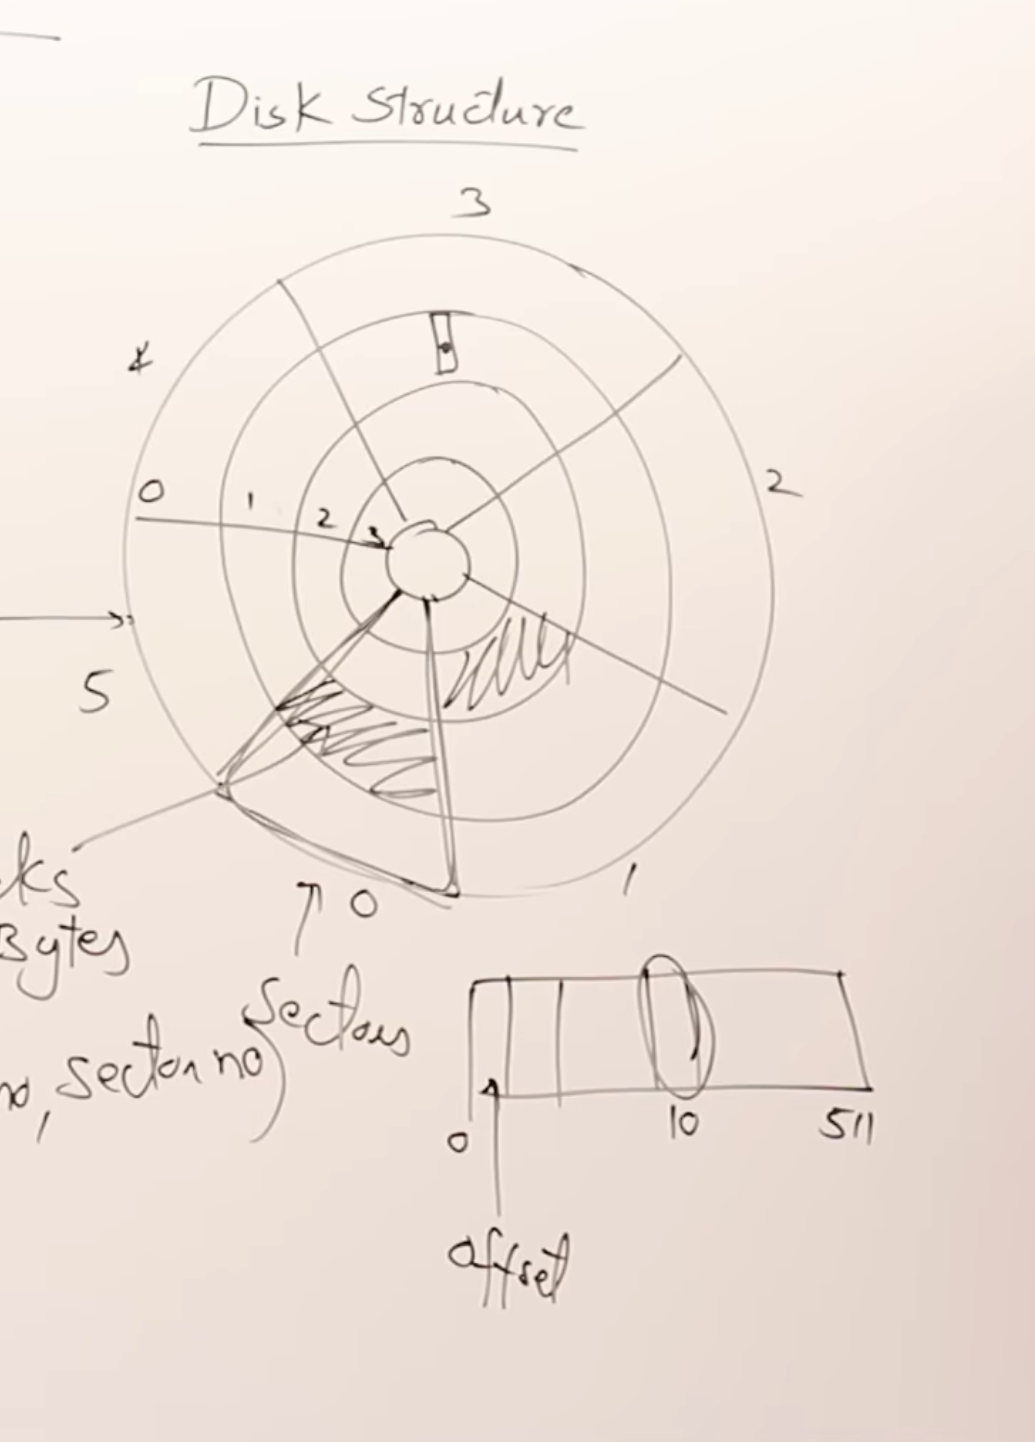 Disk Structure
3
4
2
0 1 2 3
5
1
0
Bytes
Sectors
no, sector no)
0 10 511
offset